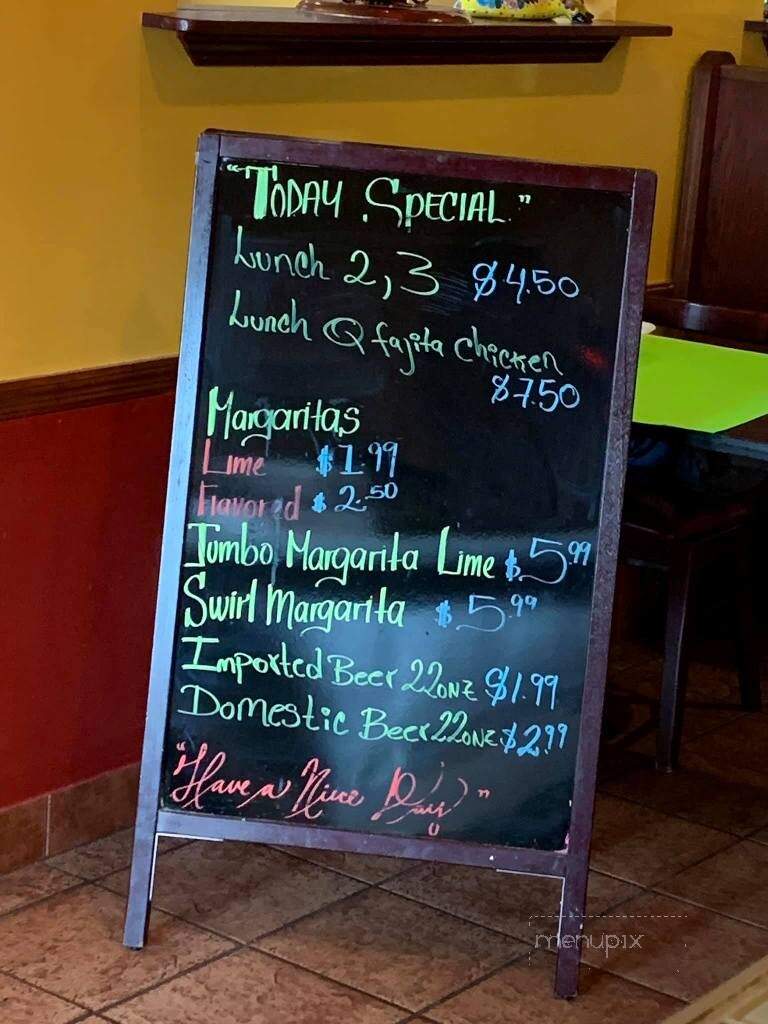 "TODAY SPECIAL"
Lunch 2,3 $4.50
Lunch Q fajita chicken
$7.50
Margaritas
Lime $1.99
Flavored $2.50
Jumbo Margarita Lime $5.99
Swirl Margarita $5.99
Imported Beer 22onz $1.99
Domestic Beer 22onz $2.99
"Have a Nice Day"
menupix